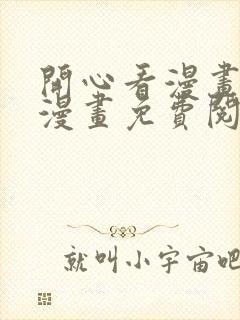 開心看漫畫
漫畫免費閱
就叫小宇宙吧